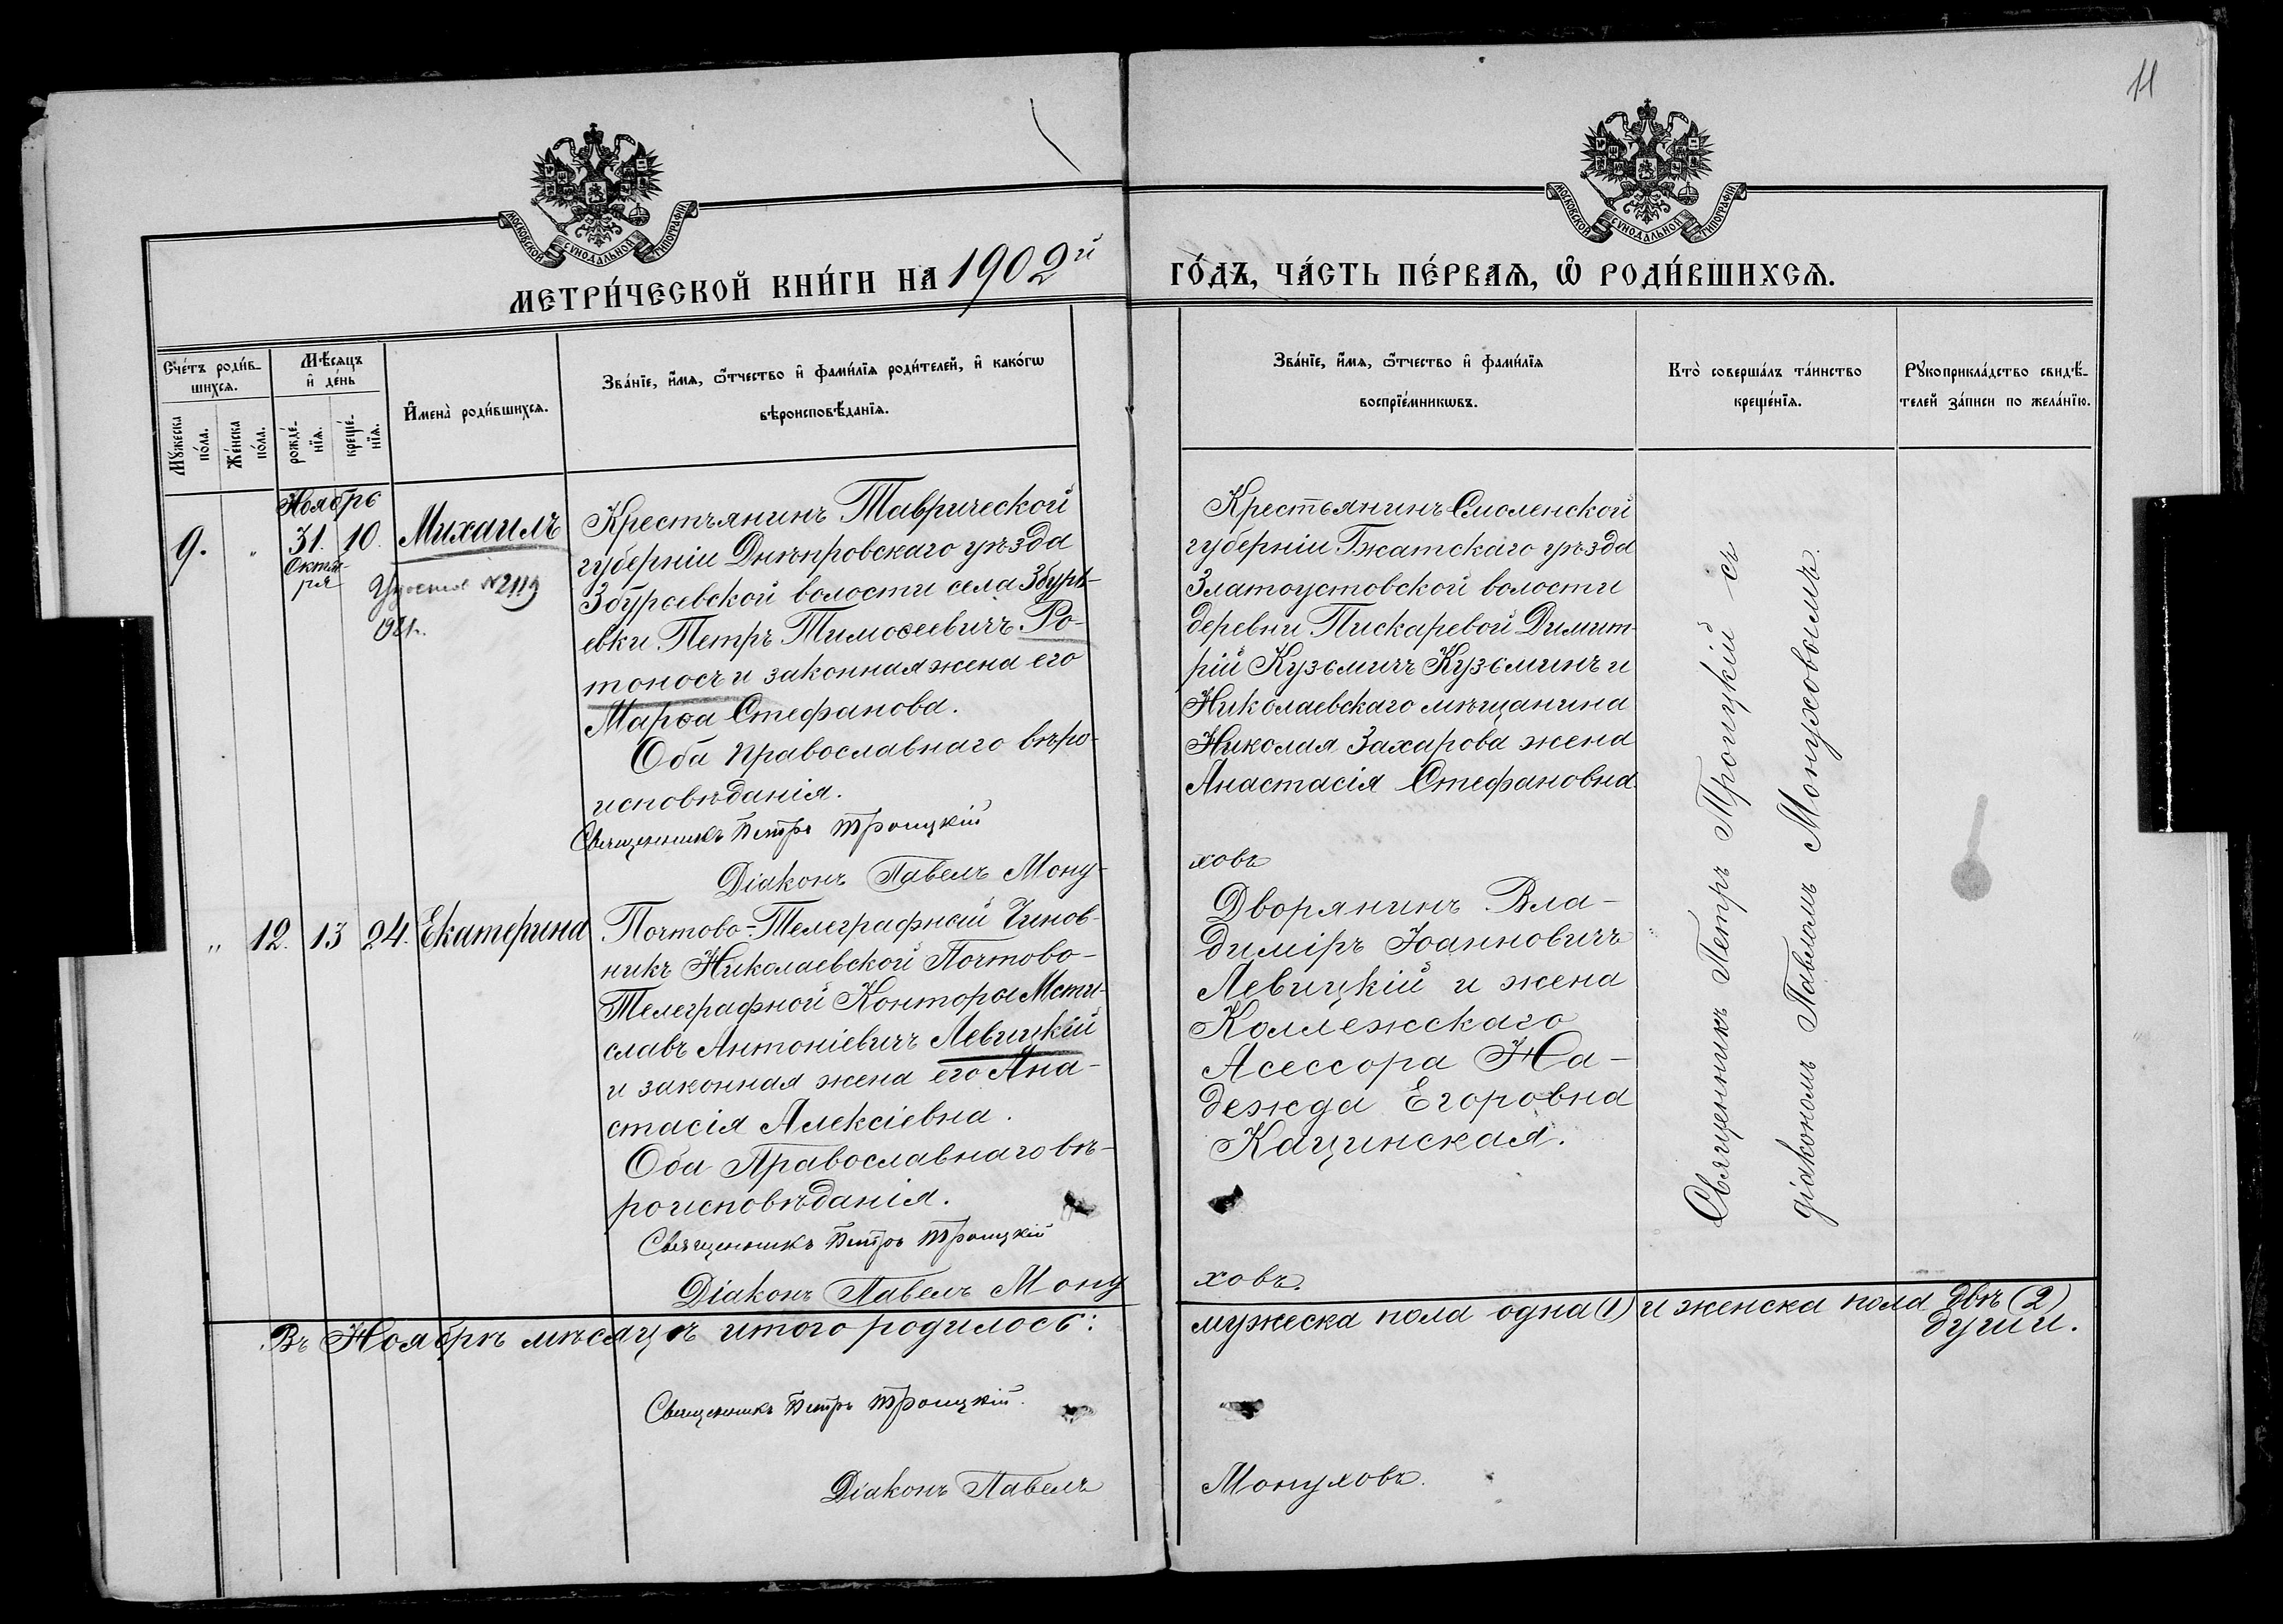 11
МОСКОВСКОЙ СУНОДАЛЬНОЙ ТИПОГРАФІИ
МОСКОВСКОЙ СУНОДАЛЬНОЙ ТИПОГРАФІИ
МЕТРИ́ЧЕСКОЙ КНИ́ГИ НА 1902й
ГО́ДЪ, ЧА́СТЬ ПЕ́РВАѦ, Ѡ҆ РОДИ́ВШИХСѦ.
Сче́тъ роди́в-
шихсѧ.
Мѣ́сѧцъ
и҆ де́нь
Мꙋ́жеска
по́ла.
Же́нска
по́ла.
рожде́-
нїѧ.
креще́-
нїѧ.
И҆мена̀ роди́вшихсѧ.
Зва́нїе, и҆́мѧ, ѻ҆́тчество и҆ фами́лїѧ роди́телей, и҆ како́гѡ
вѣроисповѣ́данїѧ.
Зва́нїе, и҆́мѧ, ѻ҆́тчество и҆ фами́лїѧ
воспрїе́мникѡвъ.
Кто̀ соверша́лъ та́инство
креще́нїѧ.
Рꙋкоприкла́дство свидѣ́-
телей за́писи по жела́нїю.
Ноябрь
9. „ 31. 10. Михаилъ
Октяб-
ря
№2119
1921г.
Крестьянинъ Таврической
губерніи Днѣпровскаго уѣзда
Збурьевской волости села Збурь-
евки Петръ Тимоѳеевичъ Ро-
тоносъ и законная жена его
Марѳа Стефанова.
Оба Православнаго вѣро-
исповѣданія.
Священникъ Петръ Троицкій
Діаконъ Павелъ Мону-
ховъ
Крестьянинъ Смоленской
губерніи Гжатскаго уѣзда
Златоустовской волости
деревни Пискаревой Димит-
рій Кузьмичъ Кузьминъ и
Николаевскаго мѣщанина
Николая Захарова жена
Анастасія Стефановна.
Священникъ Петръ Троицкій съ
діакономъ Павломъ Монуховымъ.
„ 12. 13 24. Екатерина
Почтово-Телеграфный Чинов-
никъ Николаевской Почтово-
Телеграфной Конторы Мсти-
славъ Антоніевичъ Левицкій
и законная жена его Ана-
стасія Алексіевна.
Оба Православнаго вѣ-
роисповѣданія.
Священникъ Петръ Троицкій
Діаконъ Павелъ Мону
ховъ.
Дворянинъ Вла-
диміръ Іоанновичъ
Левицкій и жена
Коллежскаго
Асессора На-
дежда Егоровна
Кацинская.
Въ Ноябрѣ мѣсяцѣ итого родилось:
мужеска пола одна (1) и женска пола двѣ (2)
души.
Священникъ Петръ Троицкій.
Діаконъ Павелъ
Монуховъ.